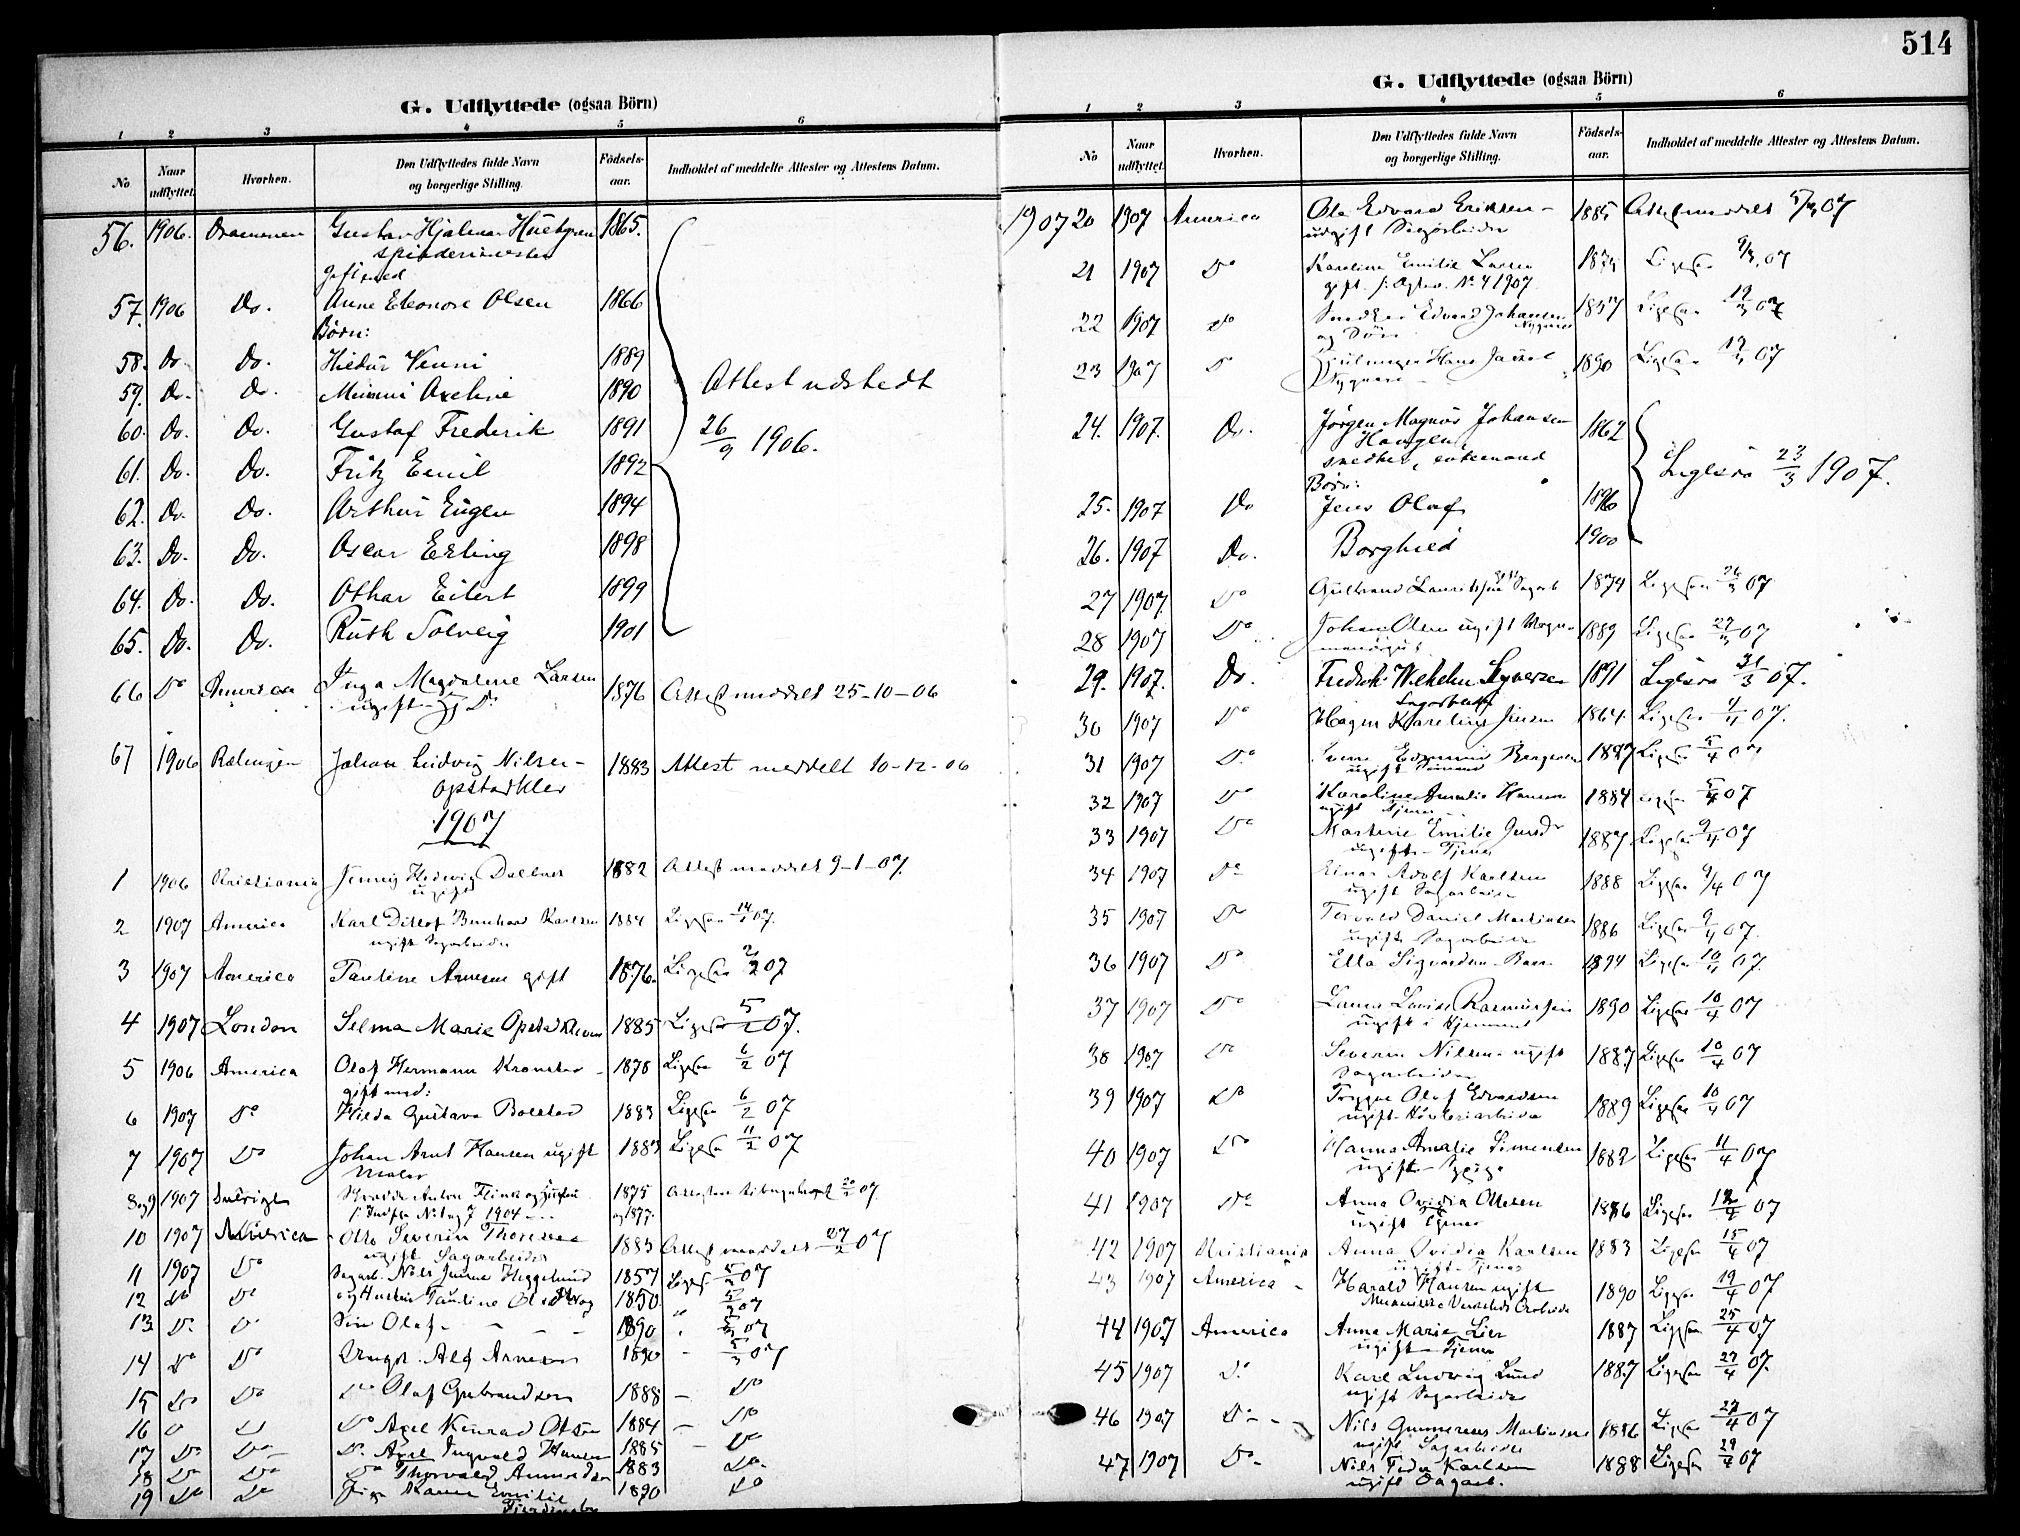 514
G. Udflyttede (ogsaa Börn)
1 2 3 4 5 6
No Naar udflyttet. Hvorhen. Den Udflyttedes fulde Navn og borgerlige Stilling. Födsels-aar. Indholdet af meddelte Attester og Attestens Datum.
56. 1906. Drammen Gustav Hjalmar 1865.
spinderimester
gift med
57. 1906 Do. Anne Eleonore Olsen 1866
Børn:
58. Do Do. Hildur Venni 1889
59. Do. Do. Mimmi Axeline 1890 Attest udstedt
60. Do. Do. Gustaf Frederik 1891 26/9 1906.
61. Do. Do. Fritz Emil 1892
62. Do. Do. Arthur Eugen 1894
63. Do. Do. Oscar Erling 1898
64. Do. Do. Othar Eilert 1899
65. Do. Do. Ruth Solveig 1901
66 Do America Inga Magdalene Larsen 1876 Attest meddelt 25-10-06
ugift
67 1906 Rælingen Johan Ludvig Nilsen 1883 Attest meddelt 10-12-06
Opstadklev
1907
1 1906 Kristiania Jenny Hedwig 1882 Attest meddelt 9-1-07.
ugift
2 1907 America Karl Ditlef Bernhard Karlsen 1884 Ligesaa 14/1 07.
ugift Sagarbeider
3 1907 America Pauline Arnesen gift 1876. Ligesaa 2/2 07
4 1907 London Selma Marie Opstadkleven 1885 Ligesaa 5/2 07.
5 1906 America Olaf Hermann 1878 Ligesaa 6/2 07
gift med:
6 1907 Do Hilda Gustava Bolstad 1883 Ligesaa 6/2 07
7 1907 Do Johan Arnt Hansen ugift 1883 Ligesaa 11/2 07
Maler
8og9 1907 Sverige Anton Flink og 1875 07.
1904 og 1877.
10 1907 America Otto Severin Thoresen 1883 Attest meddelt 27/2 07
ugift Sagarbeider
11 1907 Do Sagarb. Nils 1857 Ligesaa 5/3 07
12 do Do og Hustru Pauline 1850 5/3 07
13 Do. Do Søn Olaf 1890 5/3 07
14 Do Do Ungk. Alf Arnesen 1890 5/3 07
15 Do Do Do Olaf Gulbrandsen 1888 Do
16 Do Axel Konrad 1884 Do
17 Do Do Do. Axel Ingvald Hansen 1885 Do
18 Do Do Do Thorvald 1883 Do.
19 Do Do Pige Karen Emilie 1890 Do
G. Udflyttede (ogsaa Börn)
1 2 3 4 5 6
No Naar udflyttet. Hvorhen. Den Udflyttedes fulde Navn og borgerlige Stilling. Födsels-aar. Indholdet af meddelte Attester og Attestens Datum.
1907 20 1907 America Ole Edvard Eriksen 1885 Attest meddelt 5/3 07
ugift Sagarbeider
21 1907 Do Karoline Emilie Larsen Ligesaa 9/3 07
gift No 4 1907.
22 1907 do Snedker Edvard Johansen 1857 Ligesaa 19/3 07
og Søn Nygaard
23 1907 Do Hans 1890 Ligesaa 19/3 07
24. 1907. Do. Jørgen Magnus Johansen 1862
Haugen, Ligesaa 23/3 1907.
snedker, enkemand
Børn:
25. 1907 Do Jens Olaf 1896
26. 1907 Do. Borghild 1900
27 1907. Do Gulbrand Lauritsen gift Sagarb 1874 Ligesaa 26/3 07
28 1907 Do Johan Olsen ugift 1889 Ligesaa 27/3 07
29. 1907. Do. Fredrik Wilhelm Syversen 1891 Ligesaa 31/3 07.
30 1907 Do Hagen Karelius Jensen 1864. Ligesaa 4/4 07.
31 1907 Do Bergersen 1887 Ligesaa 5/4 07
32 1907 Do Karoline Amalie Hansen 1884 Ligesaa 5/4 07
ugift Tjener
33 1907 Do Marthine Emilie 1887 Ligesaa 9/4 07
ugift Tjener
34 1907 Do Einar Adolf Karlsen 1888 Ligesaa 9/4 07
ugift Sagarbeider
35 1907 Do Torvald Daniel Martinsen 1886 Ligesaa 9/4 07.
ugift Sagarbeider
36 1907 Do Ella 1894 Ligesaa 10/4 07.
37 1907 Do Laura Lovise Rasmussen 1890 Ligesaa 10/4 07
ugift i Hjemmet
38 1907 Do Severin Nilsen ugift 1887 Ligesaa 10/4 07
Sagarbeider
39 1907 Do Trygve Olaf Edvardsen 1889 Ligesaa 10/4 07
ugift Høvleriarbeider
40 1907 Do Hanna Amalie Simensen 1882 Ligesaa 11/4 07
ugift
41 1907 Do Anna Ovidia Olsen 1886 Ligesaa 12/4 07
ugift Tjener
42 1907 Kristiania Anna Ovidia Karlsen 1883 Ligesaa 15/4 07
ugift Tjener
43 1907 America Harald Hansen ugift 1890 Ligesaa 19/4 07
44 1907 America Anna Marie Lier 1887 Ligesaa 25/4 07
ugift Tjener
45 1907 Do Karl Ludvig Lund 1887 Ligesaa 27/4 07.
ugift Sagarbeider
46 1907 Do Nils Gunnerius Martinsen 1886 Ligesaa 27/4 07
ugift Sagarbeider
47 1907 Do Nils Peder Karlsen 1888 Ligesaa 29/4 07
ugift Sagarb.